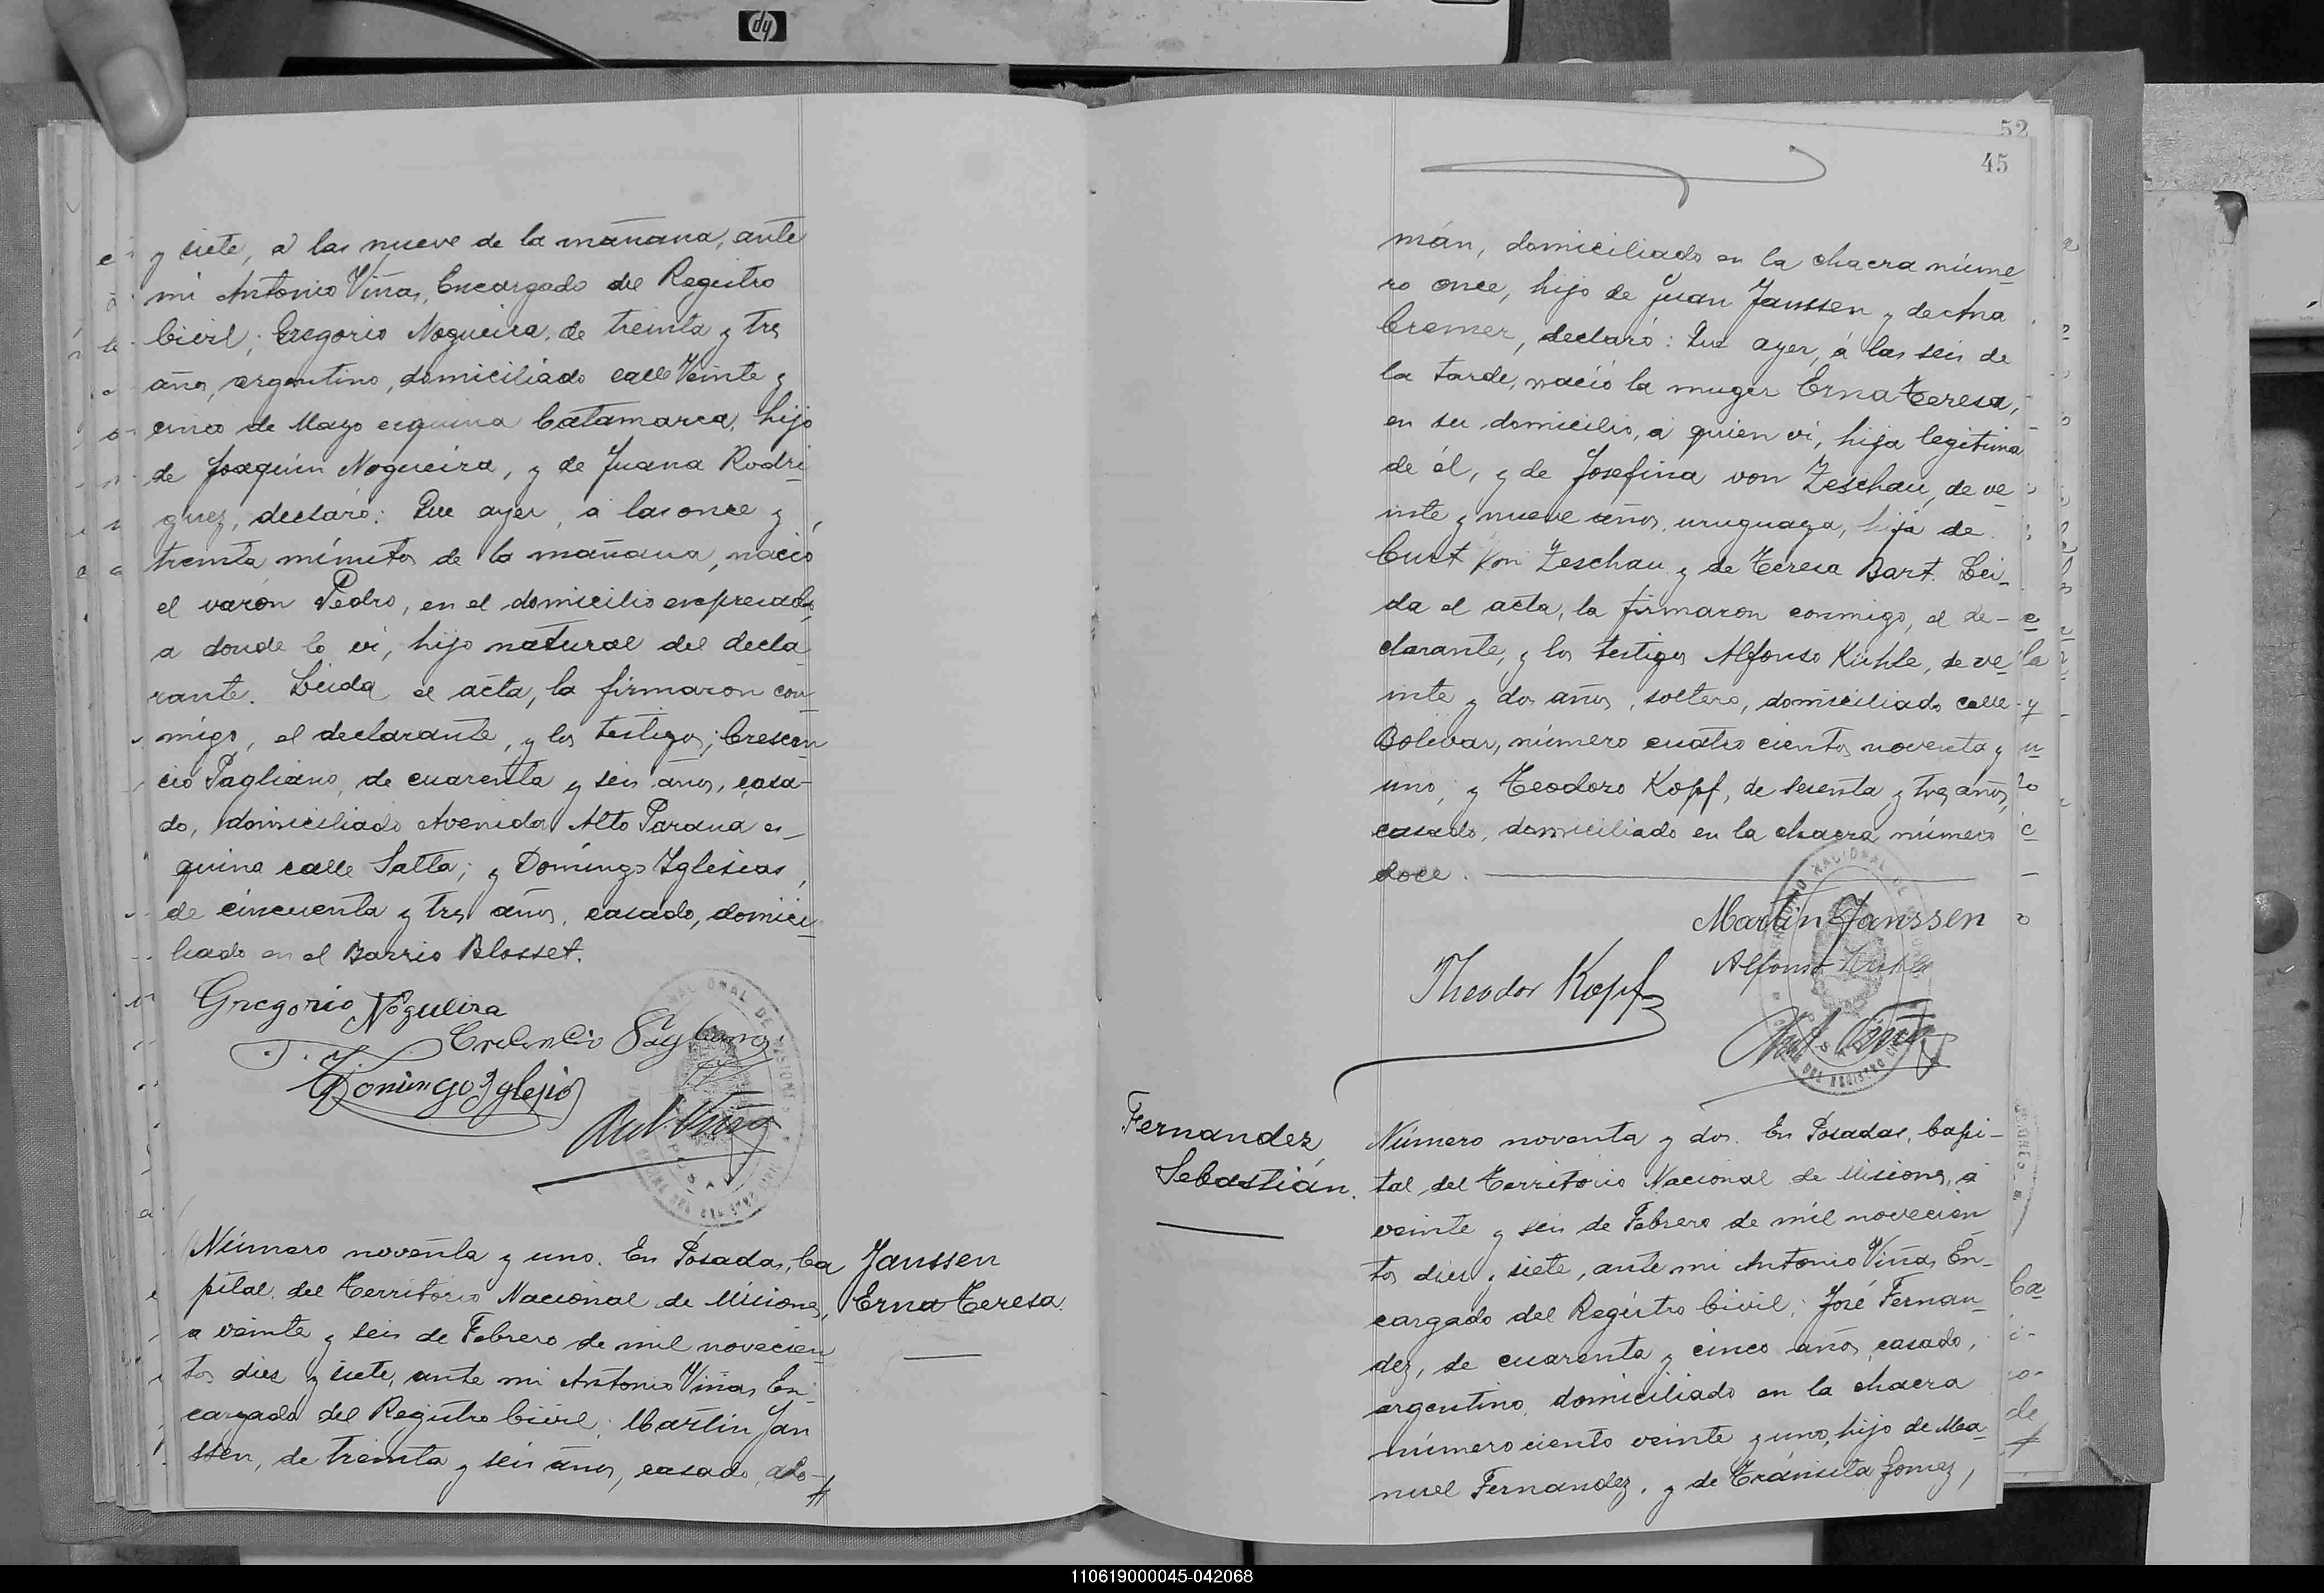 hp
y siete, a las nueve de la mañana, ante
mi Antonio Viñas, Encargado del Registro
Civil; Gregorio Nogueira, de treinta y tres
años, argentino, domiciliado calle Veinte y
cinco de Mayo esquina Catamarca, hijo
de Joaquin Nogueira, y de Juana Rodri-
guez, declaró: Que ayer, a las once y
treinta minutos de la mañana, nació
el varon Pedro, en el domicilio expresado,
a donde lo vi, hijo natural del decla-
rante. Leida el acta, la firmaron con-
migo, el declarante, y los testigos; Crescen-
cio Pagliano, de cuarenta y seis años, casa-
do, domiciliado Avenida Alto Parana es-
quina calle Salta; y Domingo Iglesias,
de cincuenta y tres años, casado, domici-
liado en el Barrio Blosset.
Gregorio Nogueira
Domingo Iglesias
Número noventa y uno. En Posadas, Ca
pital del Territorio Nacional de Misiones,
a veinte y seis de Febrero de mil novecien-
tos diez y siete, ante mi Antonio Viñas, En-
cargado del Registro Civil; Martin Jan
ssen, de treinta y seis años, casado, ale-
Janssen
Erna Teresa.
52
45
mán, domiciliado en la chacra núme-
ro once, hijo de Juan Janssen y de Ana
Cremer, declaró: Que ayer, á las seis de
la tarde, nació la muger Erna Teresa,
en su domicilio, a quien vi, hija legitima
de él, y de Josefina von Zeschau, de ve-
inte y nueve años, uruguaya, hija de
Curt von Zeschau y de Teresa Bart. Lei-
da el acta, la firmaron conmigo, el de-
clarante, y los testigos Alfonso Kühle, de ve-
inte y dos años, soltero, domiciliado calle
Bolivar, número cuatro cientos noventa y
uno; y Teodoro Kopf, de sesenta y tres años,
casado, domiciliado en la chacra número
doce.
Martin Janssen
Alfonso
Theodor Kopf
Fernandez
Sebastián.
Número noventa y dos. En Posadas, Capi-
tal del Territorio Nacional de Misiones, á
veinte y seis de Febrero de mil novecien-
tos diez y siete, ante mi Antonio Viñas, En-
cargado del Registro Civil; José Fernan-
dez, de cuarenta y cinco años, casado,
argentino, domiciliado en la chacra
número ciento veinte y uno, hijo de Ma-
nuel Fernandez, y de Tránsita Gomez,
110619000045-042068